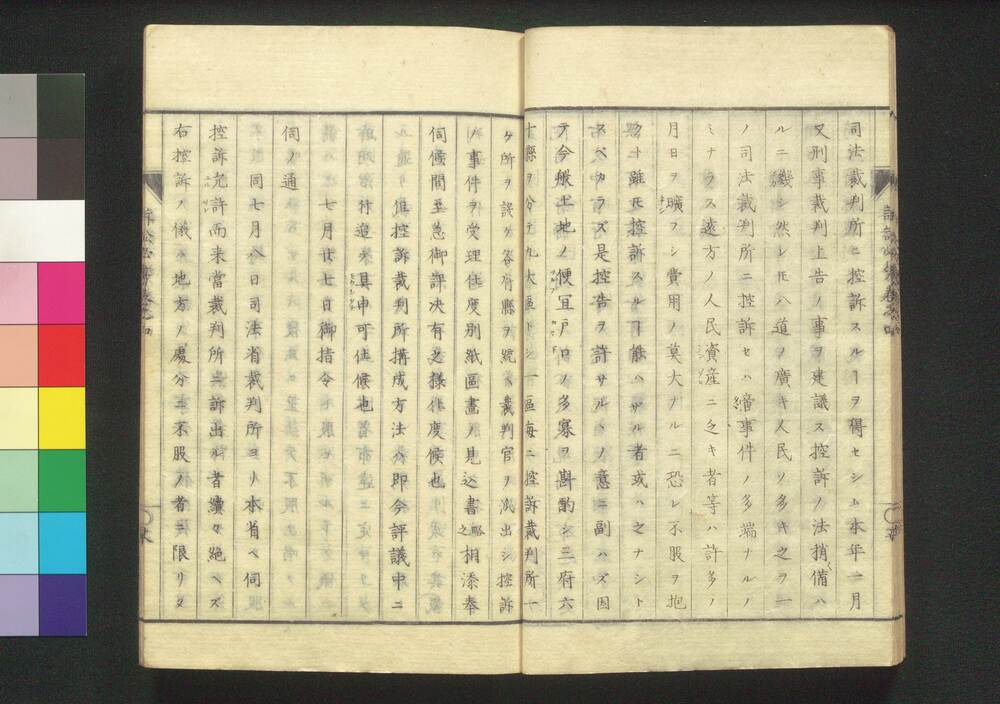 司法裁判所ニ控訴スルヿヲ得セシム本年二月
又刑事裁判上告ノ事ヲ建議ス控訴ノ法稍備ハ
ルニ幾シ然レ𪜈八道ノ廣キ人民ノ多キ之ヲ一
ノ司法裁判所ニ控訴セハ啻事件ノ多端ナルノ
ミナラス遠方ノ人民資産ニ乏キ者等ハ許多ノ
月日ヲ曠フシ費用ノ莫大ナルニ恐レ不服ヲ抱
クト雖𪜈控訴スルヿ能ハサル者或ハ之ナシト
スベカラズ是控告ヲ許サルヽノ意ニ副ハズ因
テ今般土地ノ便宜戸口ノ多寡ヲ斟酌シ三府六
十縣ヲ分テ九大區トシ一區毎ニ控訴裁判所一
ケ所ヲ設ケ各府縣ヲ統ヘ裁判官ヲ派出シ控訴
ノ事件ヲ受理仕度別紙區畫ノ見込書略之相添奉
伺候間至急御評决有之樣仕度候也
但控訴裁判所搆成方法ハ即今評議中ニ
付追テ具申可仕候也
七月廿七日御指令
伺ノ通
同七月八日司法省裁判所ヨリ本省ヘ伺
控訴允許而来當裁判所ニ訴出ル者續々絶ヘズ
右控訴ノ儀ハ地方ノ處分ニ不服ノ者ニ限リタ